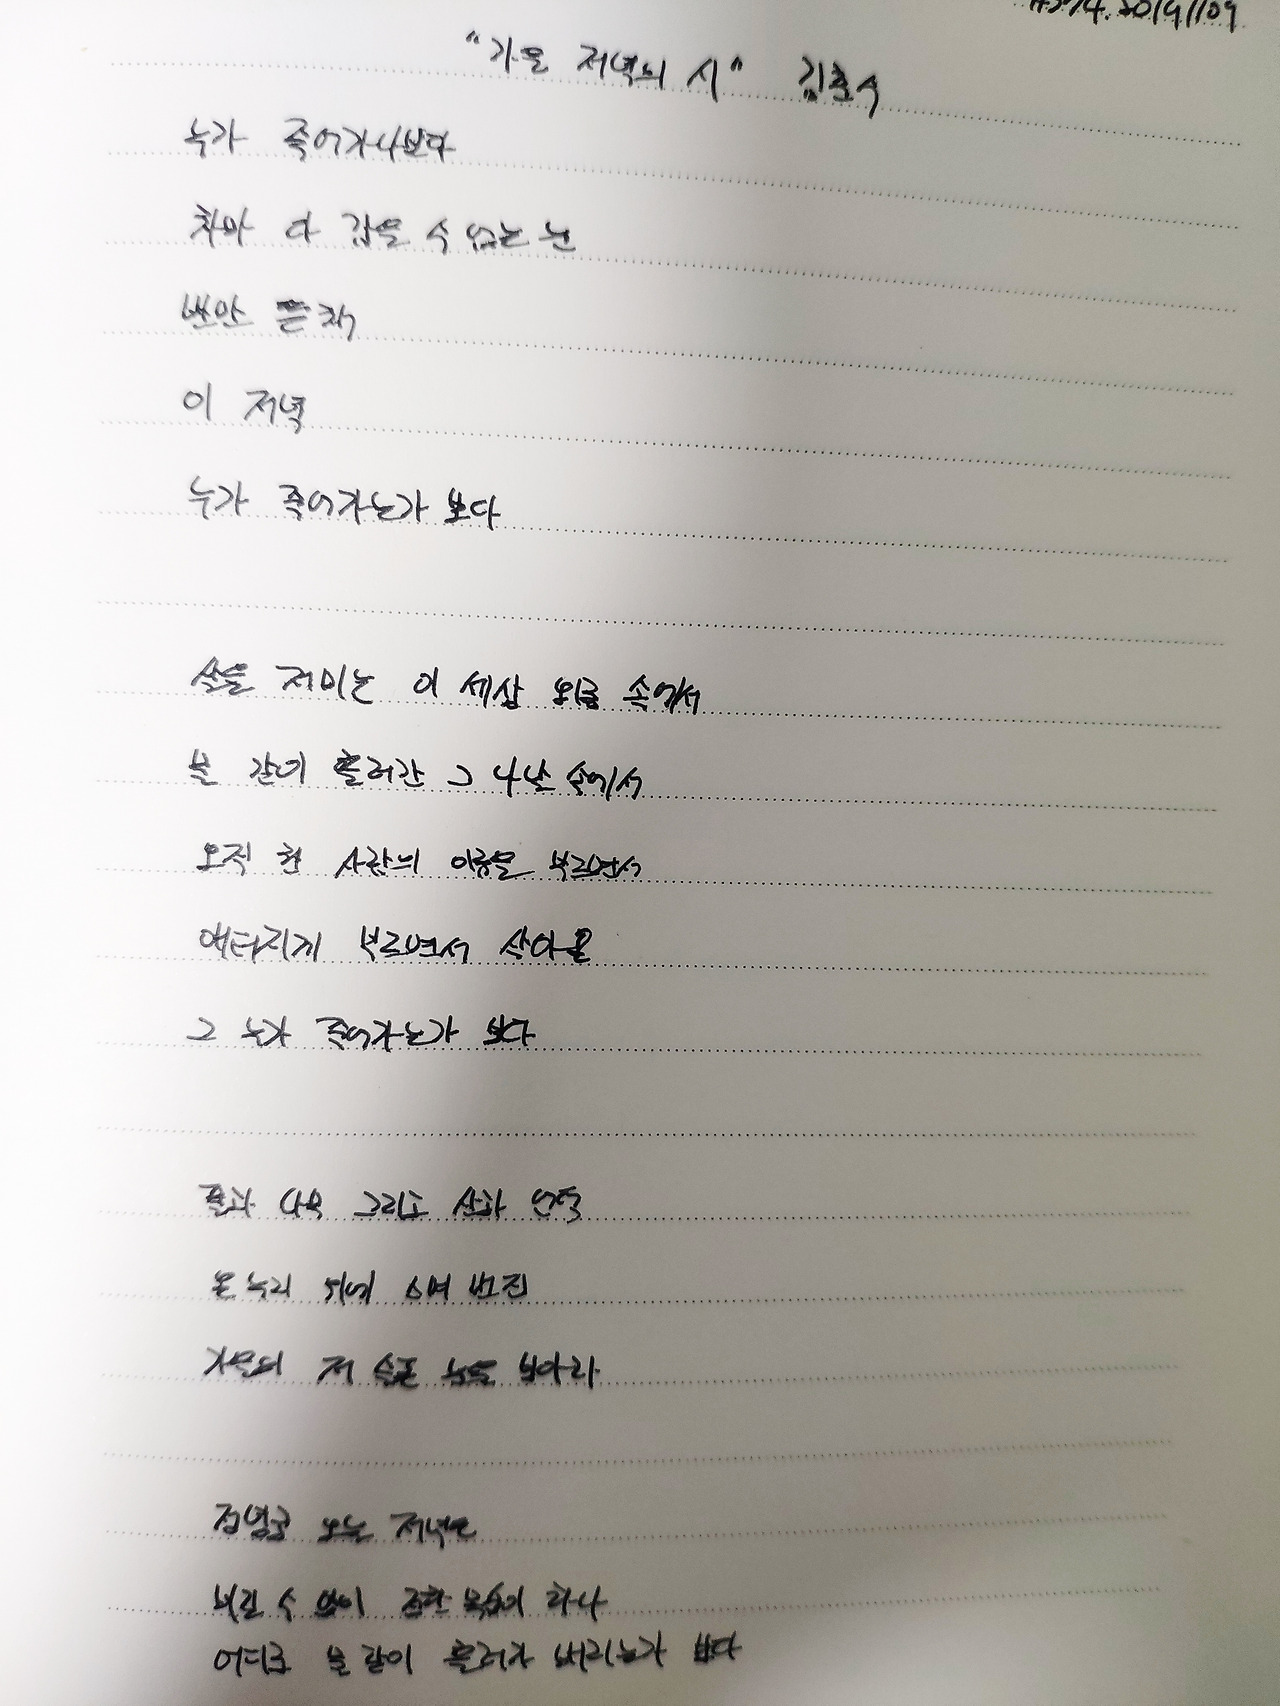 "가을 저녁의 시" 김춘수
누가 죽어가나보다
차마 다 감을 수 없는 눈
반만 뜬 채
이 저녁
누가 죽어가는가 보다
살을 저미는 이 세상 외롬 속에서
물 같이 흘러간 그 나날 속에서
오직 한 사람의 이름을 부르면서
애터지게 부르면서 살아온
그 누가 죽어가는가 보다
풀과 나무 그리고 산과 언덕
온누리 위에 스며 번진
가을의 저 슬픈 눈을 보아라
정녕코 오늘 저녁은
비길 수 없이 정한 목숨이 하나
어디로 물 같이 흘러가 버리는가 보다